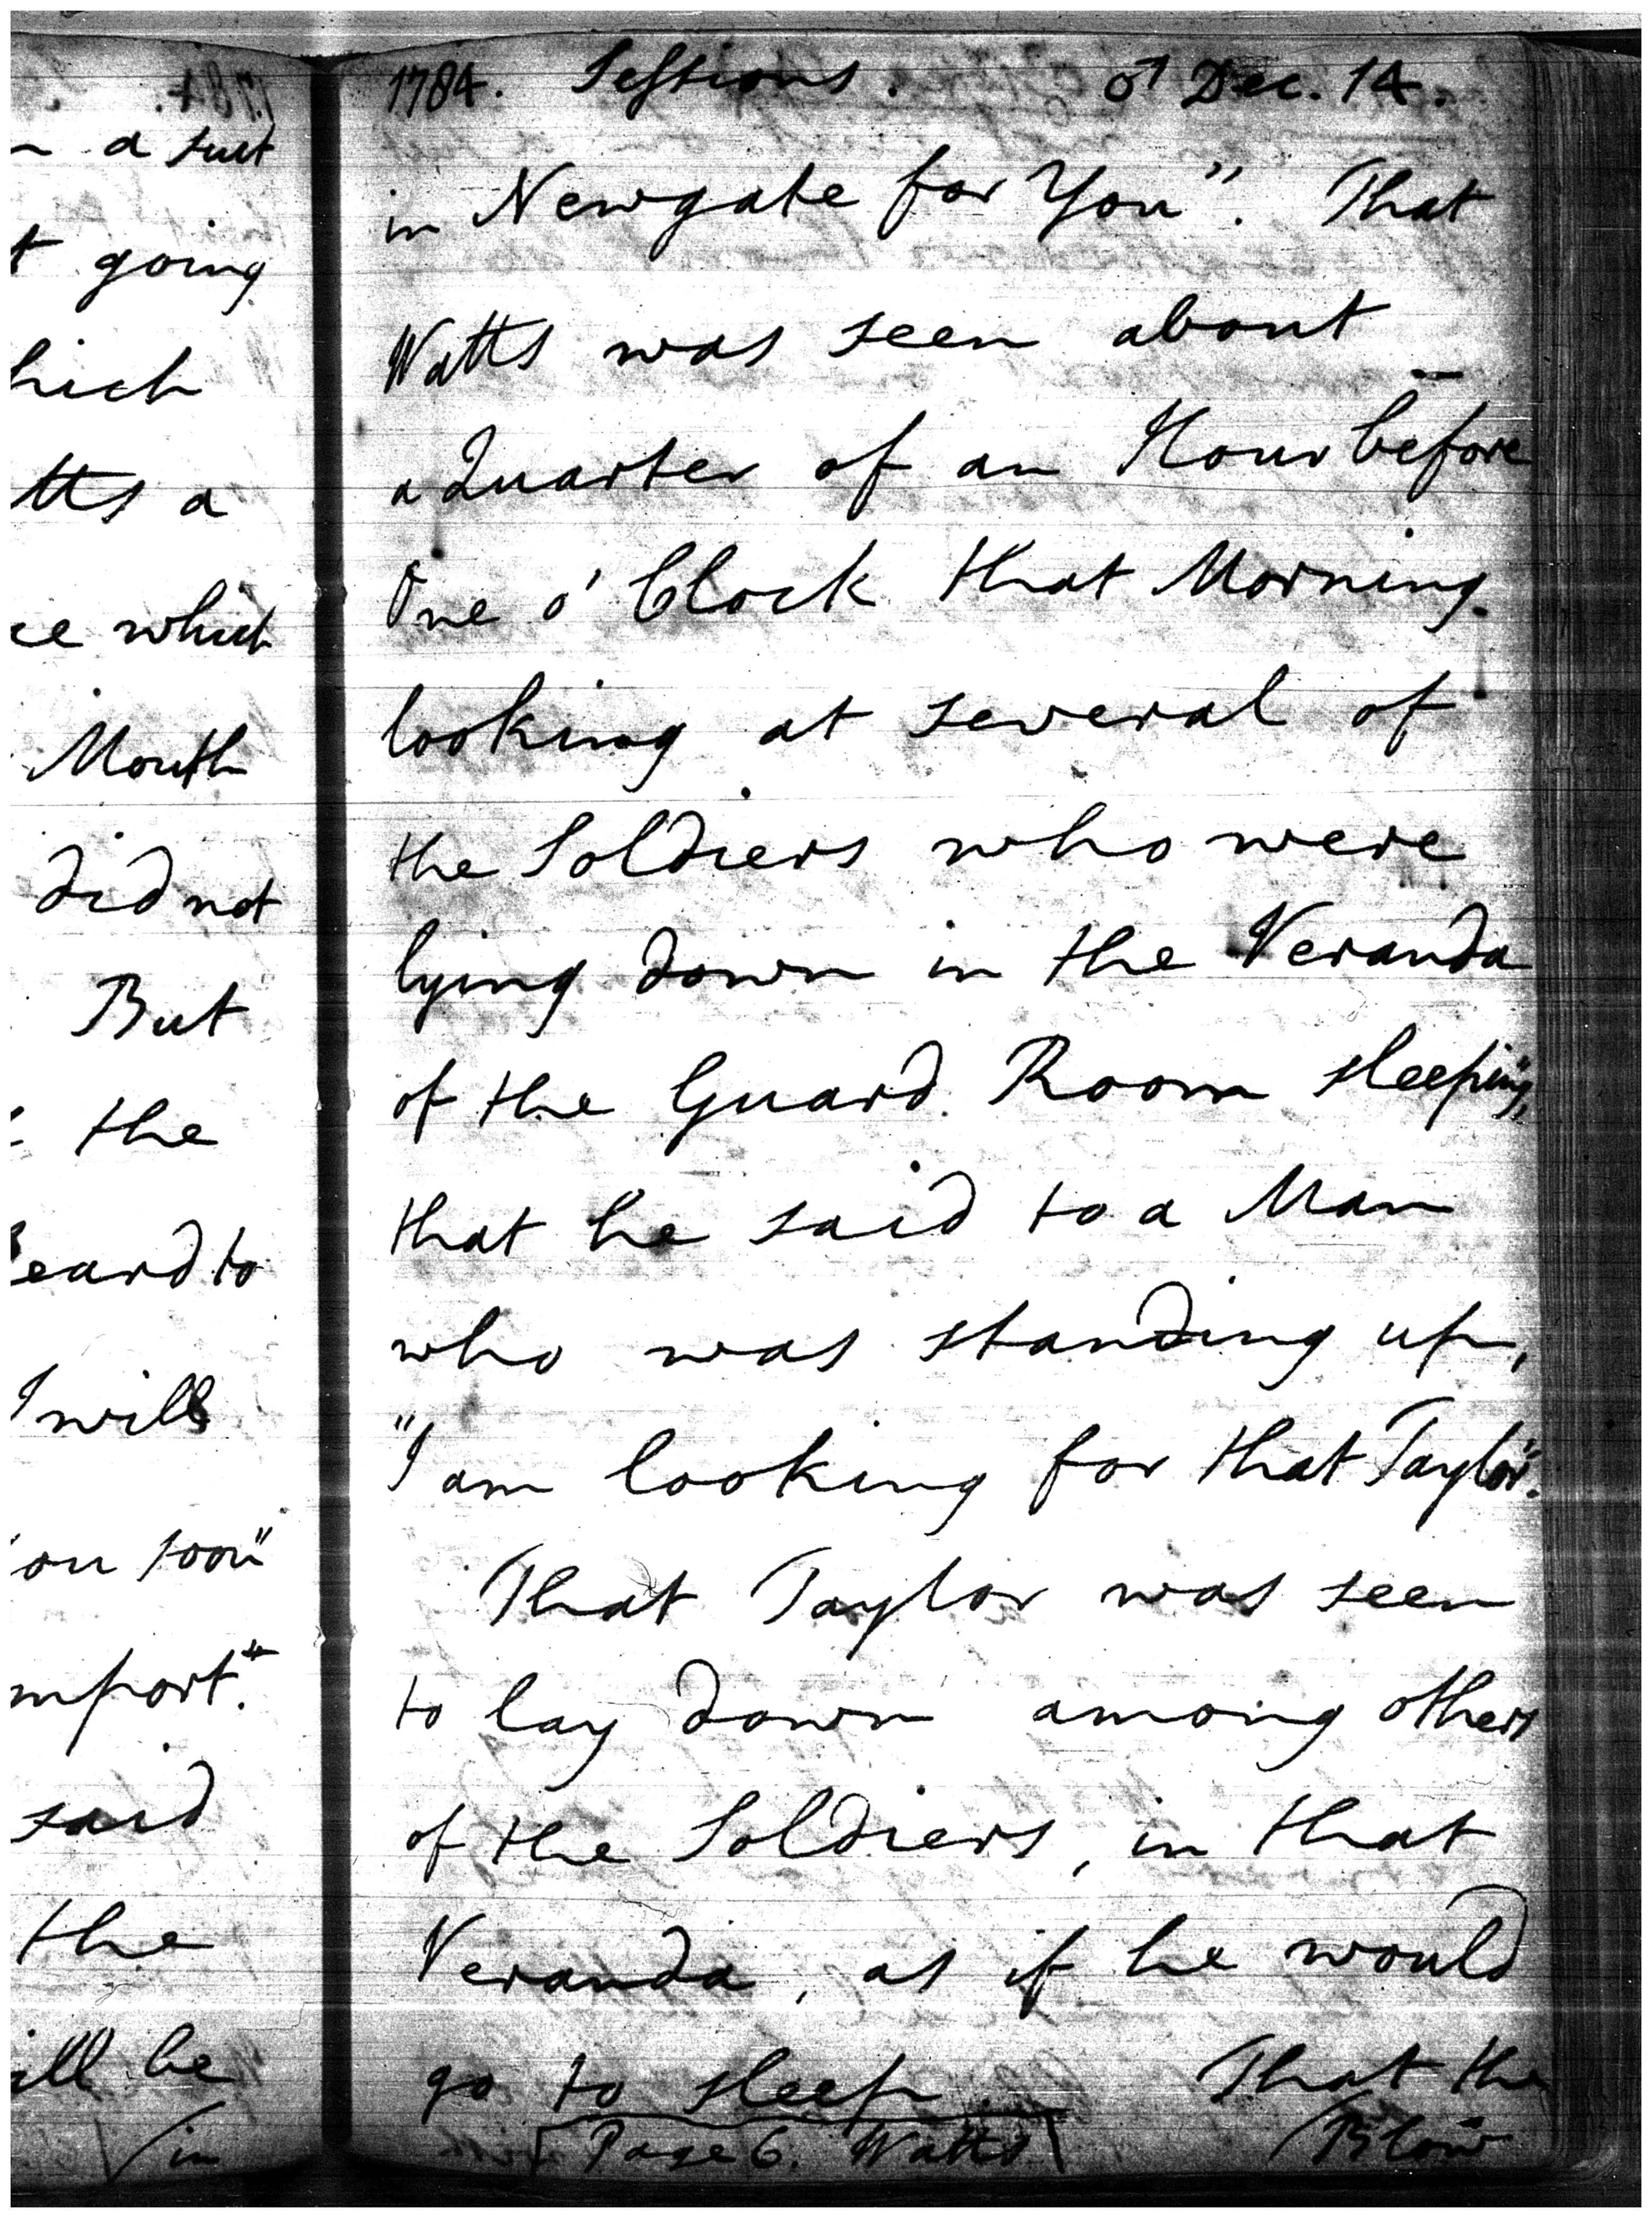 1784.
n a suit
t going
hich
tts a
ce which
Mouth
did not
But
the
eard to
I will
ou soon"
mport."
said
the
ill be
/in
1784. Sessions. ♂ Dec. 14.
in Newgate for You". That
Watts was seen about
a Quarter of an Hour before
One o' Clock that Morning
looking at several of
the Soldiers who were
lying down in the Veranda
of the Guard Room sleeping,
that he said to a Man
who was standing up,
"I am looking for that Taylor".
That Taylor was seen
to lay down among others
of the Soldiers, in that
Veranda, as if he would
go to sleep. That the
[Page 6. Watts] /Blow